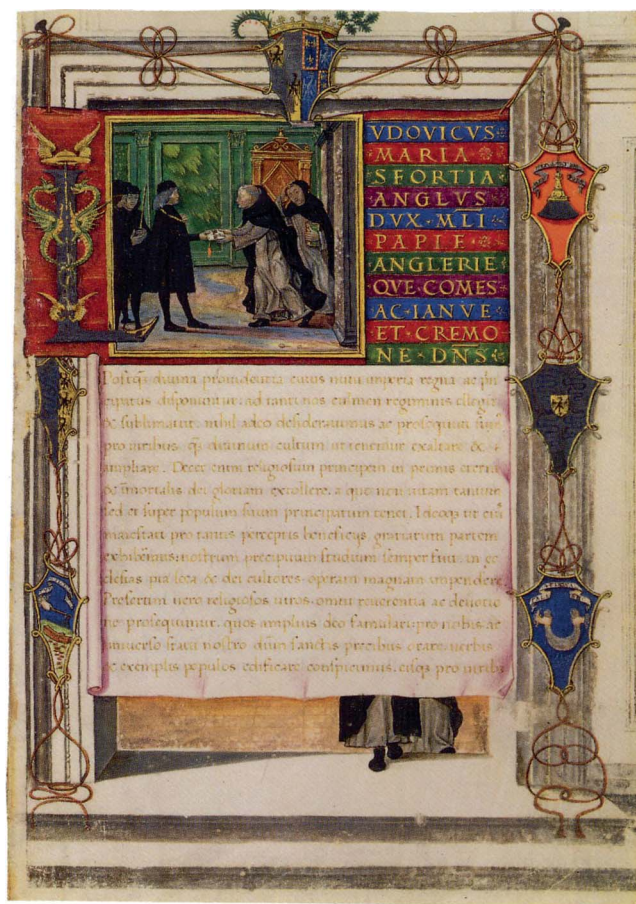 VDOVICVS
MARIA
SFORTIA
ANGLVS
DVX · MLI
PAPIE
ANGLERIE
QVE COMES
AC · IANVE
ET · CREMO
NE · DNS
Postq̄ divina providentia cuius nutu imperia regna ac
cipatus disponuntur: ad tanti nos culmen regiminis
& sublimavit: nihil adeo desideravimus ac prosequuti
pro viribus q̄ divinum cultum ut tenemur exaltare &
ampliare. Decet enim religiosum principem in primis
& immortalis dei gloriam extollere, a quo non vitam tantum
sed et super populum suum principatum tenet. ut
maiestati pro tantis perceptis beneficiis gratiarum partem
exhiberemus: nostrum precipuum studium semper fuit in ec
clesias pia loca & dei cultores operam magnam impendere
vero religiosos viros omni reverentia ac devotio
ne prosequimur. quos amplius deo famulari: pro nobis ac
universo statu nostro sanctis precibus orare: verbis
& exemplis populos edificare conspicimus.